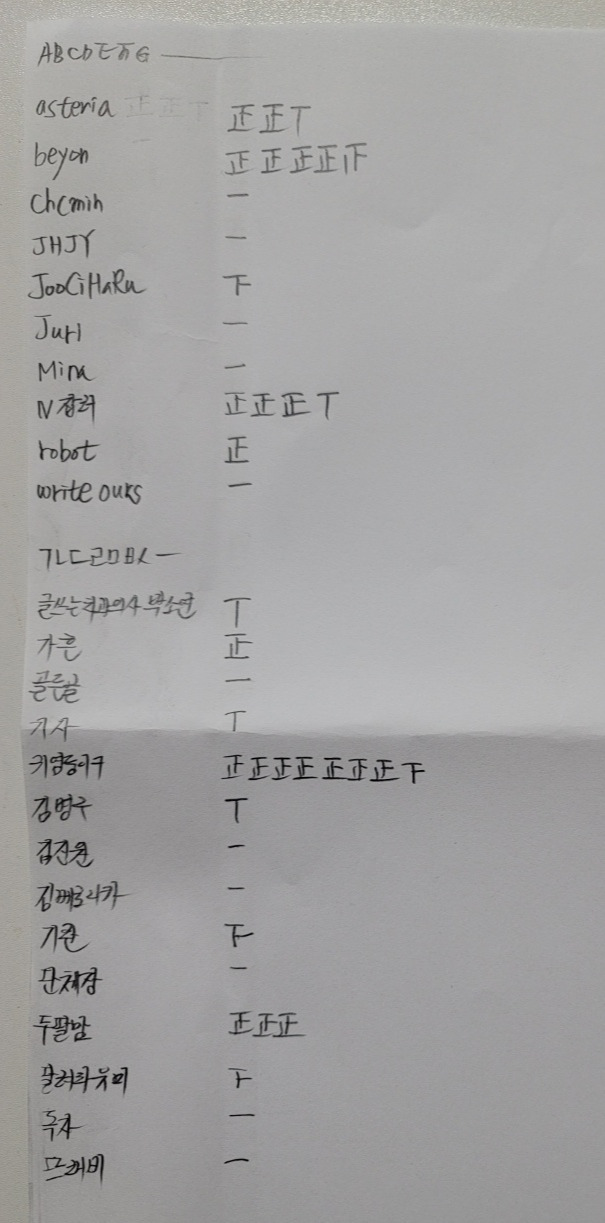 ABCDEFG
asteria 正正丅
beyon 正正正正正
chcmin 一
JHJY 一
JooCiHaRu 下
Juri 一
Mina 一
N잡러 正正正丅
robot 正
write ours 一
ㄱㄴㄷㄹㅁㅂㅅ
글쓰는치과의사 박소연 丅
가흔 正
골든골 一
기사 丅
귀염둥이구 正正正正正正正下
김명주 丅
김진원 一
김메리카 一
기콴 下
단체장 一
두팔남 正正正
달려라유미 下
독자 一
뜨래비 一